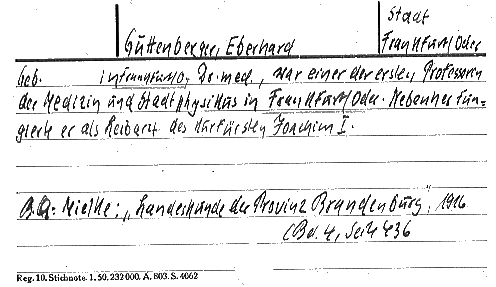 Stadt
Guttenberger, Eberhard Frankfurt/Oder
Geb. in Frankfurt/O, Dr. med., war einer der ersten Professoren
der Medizin und Stadtphysikus in Frankfurt/Oder. Nebenher fun-
gierte er als Leibarzt des Kurfürsten Joachim I.
B.Q.: Mielke: „Landeskunde der Provinz Brandenburg", 1916
(Bd. 4, Seite 436
Reg. 10. Stichnote. 1. 50. 232 000. A. 803. S. 4062